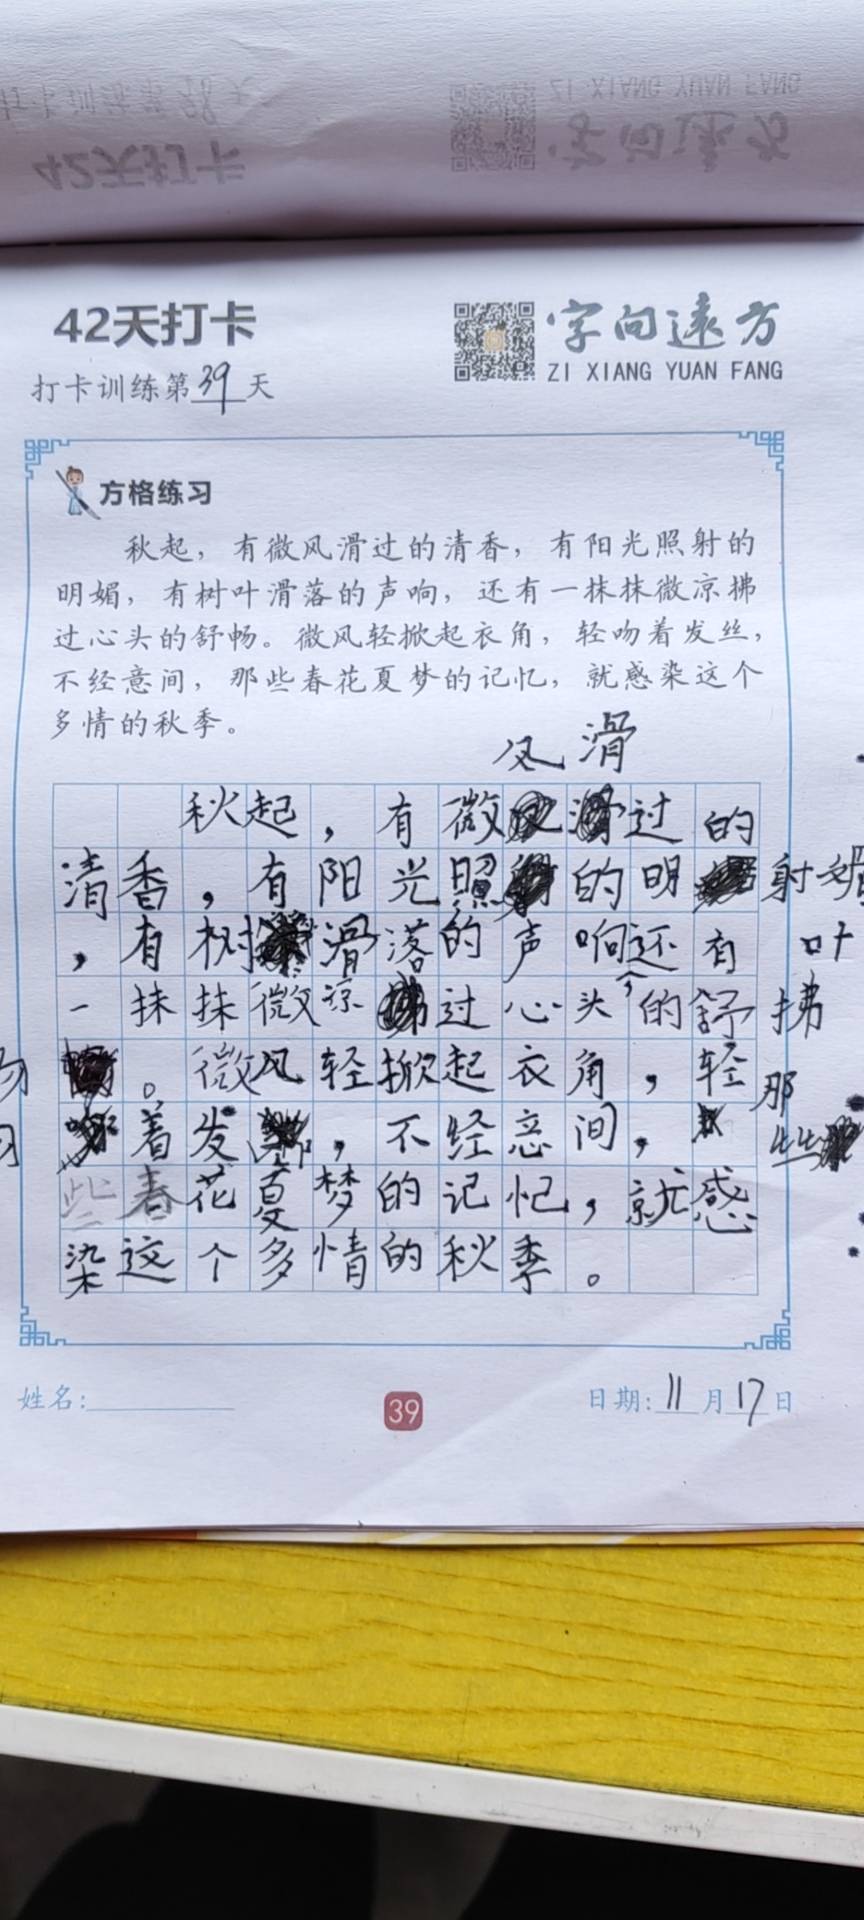 42天打卡
字向远方
ZI XIANG YUAN FANG
打卡训练第39天
方格练习
秋起，有微风滑过的清香，有阳光照射的
明媚，有树叶滑落的声响，还有一抹抹微凉拂
过心头的舒畅。微风轻掀起衣角，轻吻着发丝，
不经意间，那些春花夏梦的记忆，就感染这个
多情的秋季。
风 滑
秋起，有微过的
清香，有阳光照的明 射媚
，有树滑落的声响，还有 叶
一抹抹微凉过心头的舒 拂
。微风轻掀起衣角，轻 那
着发，不经意间， 些
些春花夏梦的记忆，就感
染这个多情的秋季。
姓名:
39
日期:11月17日